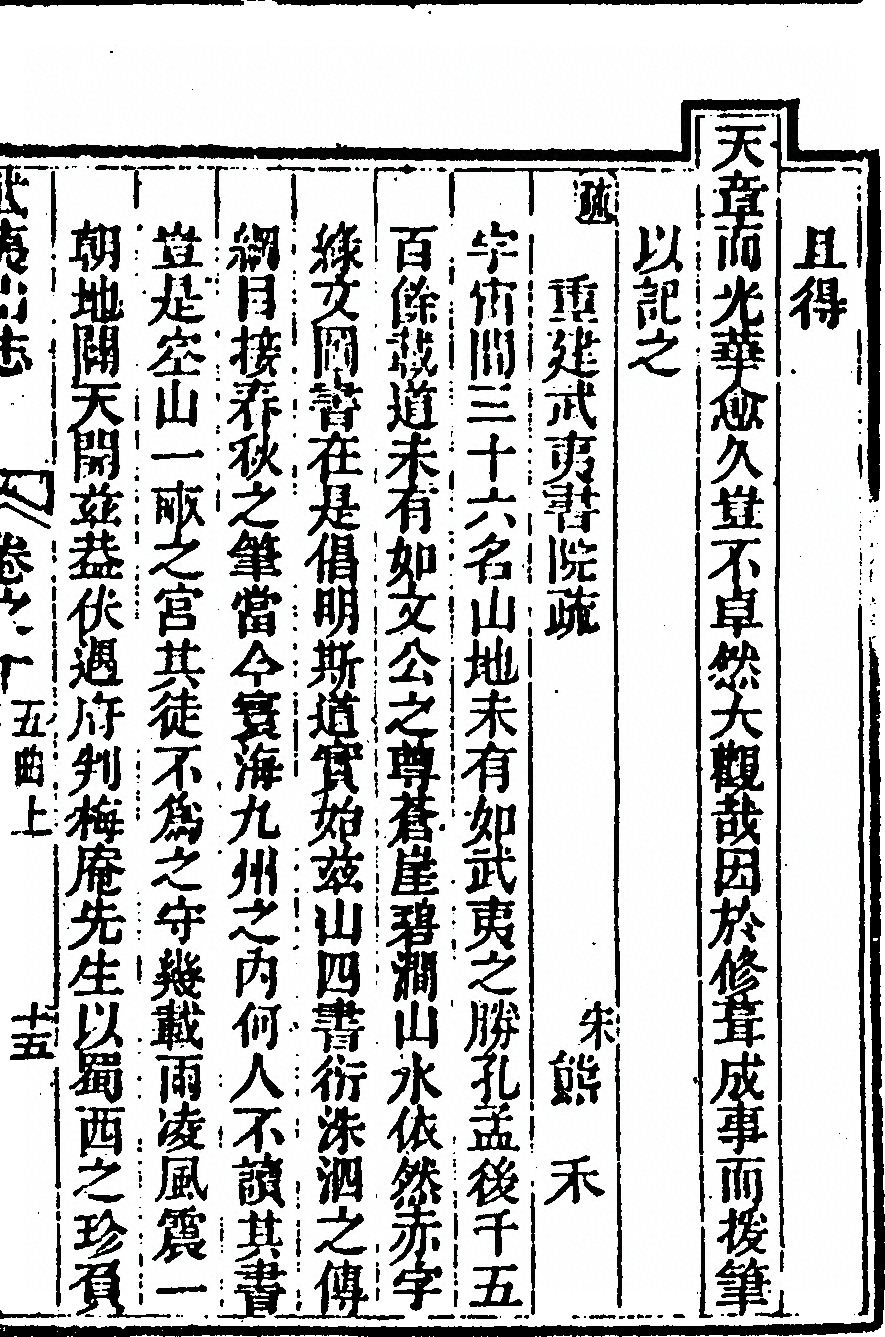 且得
天章而光華愈久豈不卓然大觀哉因於修葺成事而援筆
以記之
疏
重建武夷書院疏
宋熊禾
宇宙間三十六名山地未有如武夷之勝孔孟後千五
百餘載道未有如文公之尊蒼崖碧澗山水依然赤字
綠文圖書在是倡明斯道實始茲山四書衍洙泗之傳
綱目接春秋之筆當今寰海九州之內何人不讀其書
豈是空山一畝之宮其徒不爲之守幾載雨凌風震一
朝地闢天開茲葢伏遇府判梅庵先生以蜀西之珍負
武夷山志
卷之十
五曲上
十五